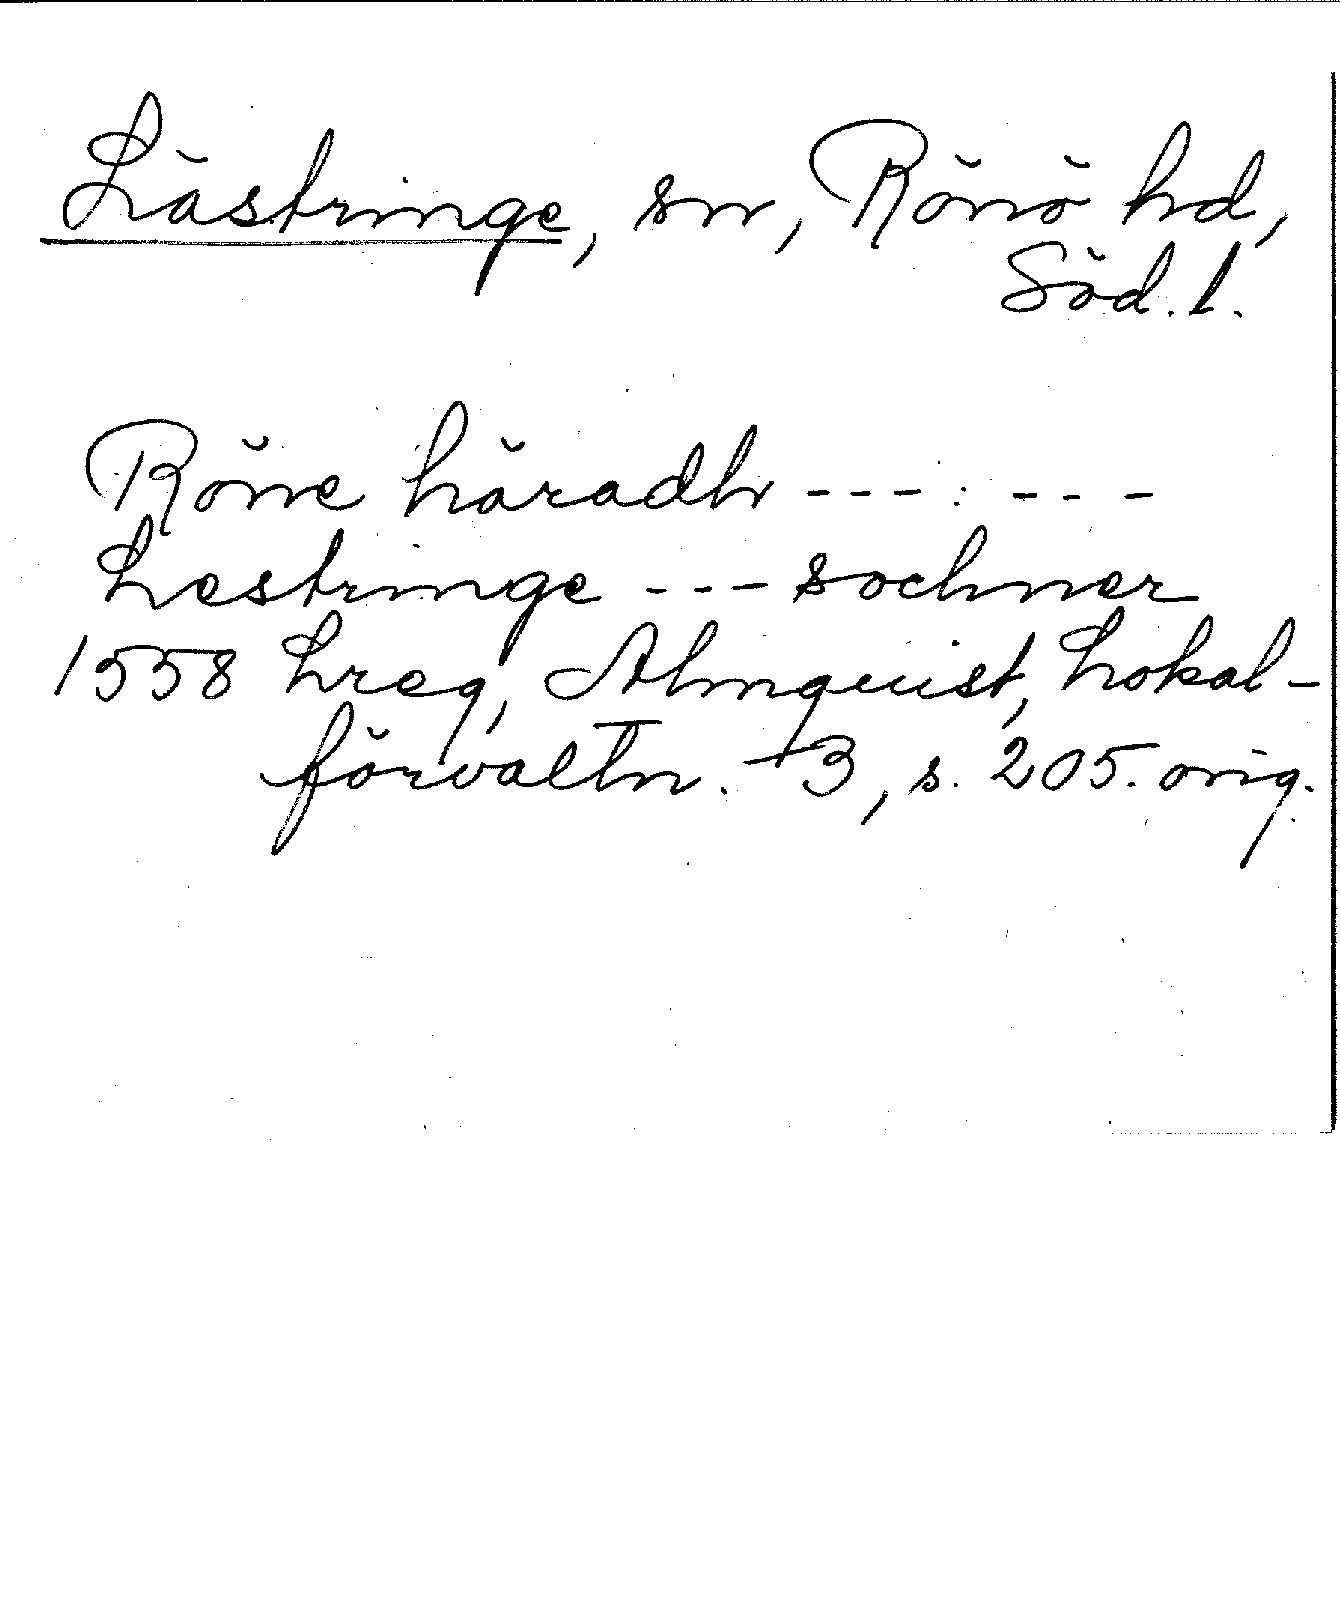 Lästringe, sn, Rönö hd,
Söd. l.
Röne häradh --- : ---
Lestringe --- sochner
1558 Lreg, Almquist, Lokal-
förvaltn. 3, s. 205. orig.